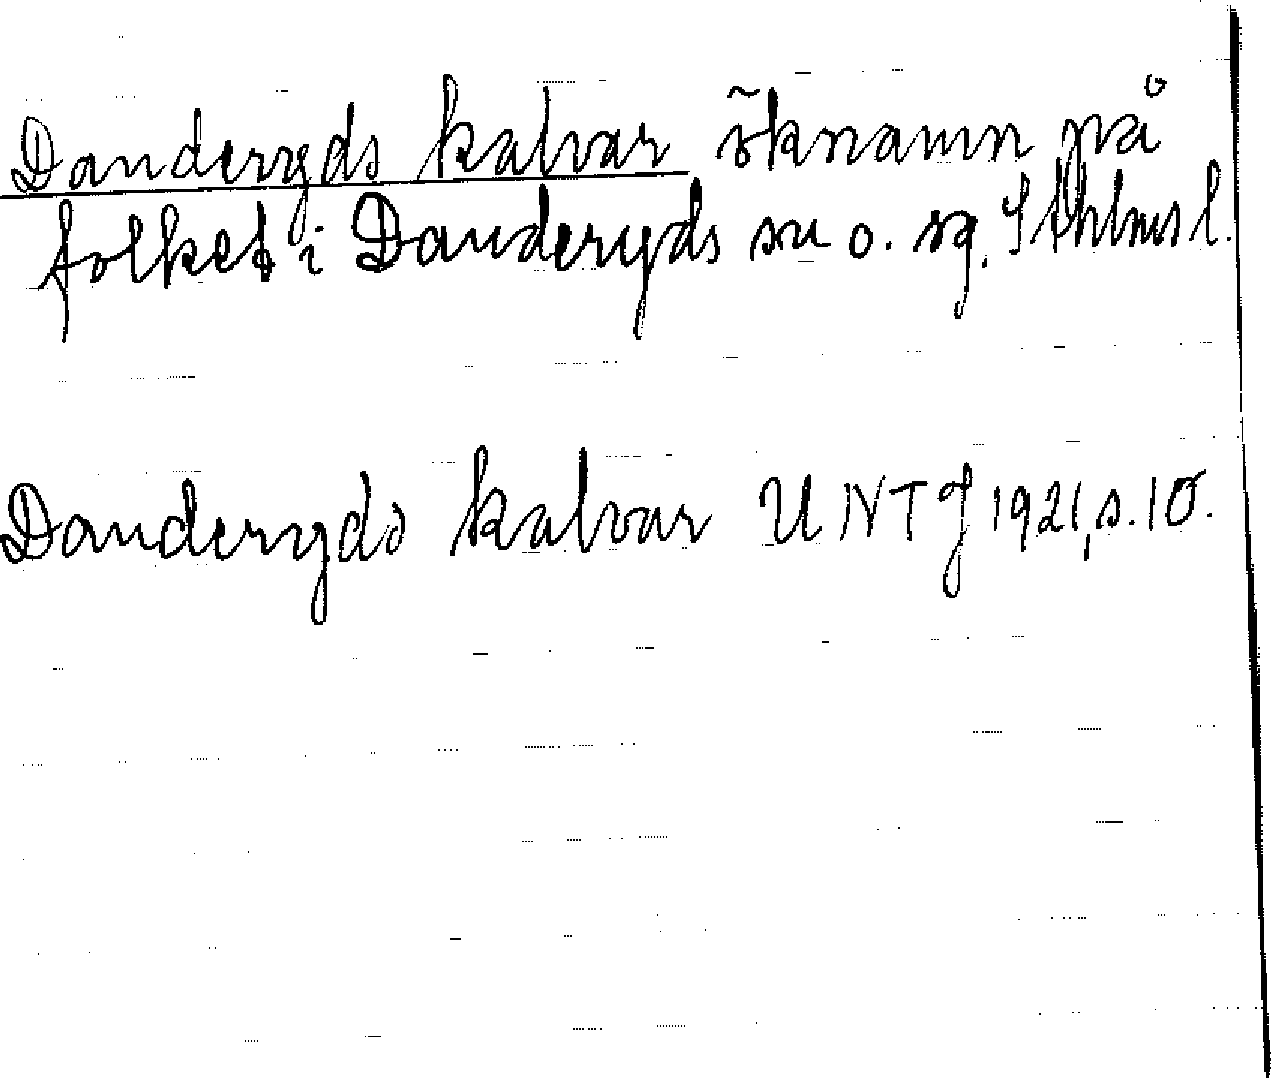 Danderyds kalvar öknamn på
folket i Danderyds sn o. sg. Sthlms l.
Danderyds kalvar UNT J 1921, s. 10.